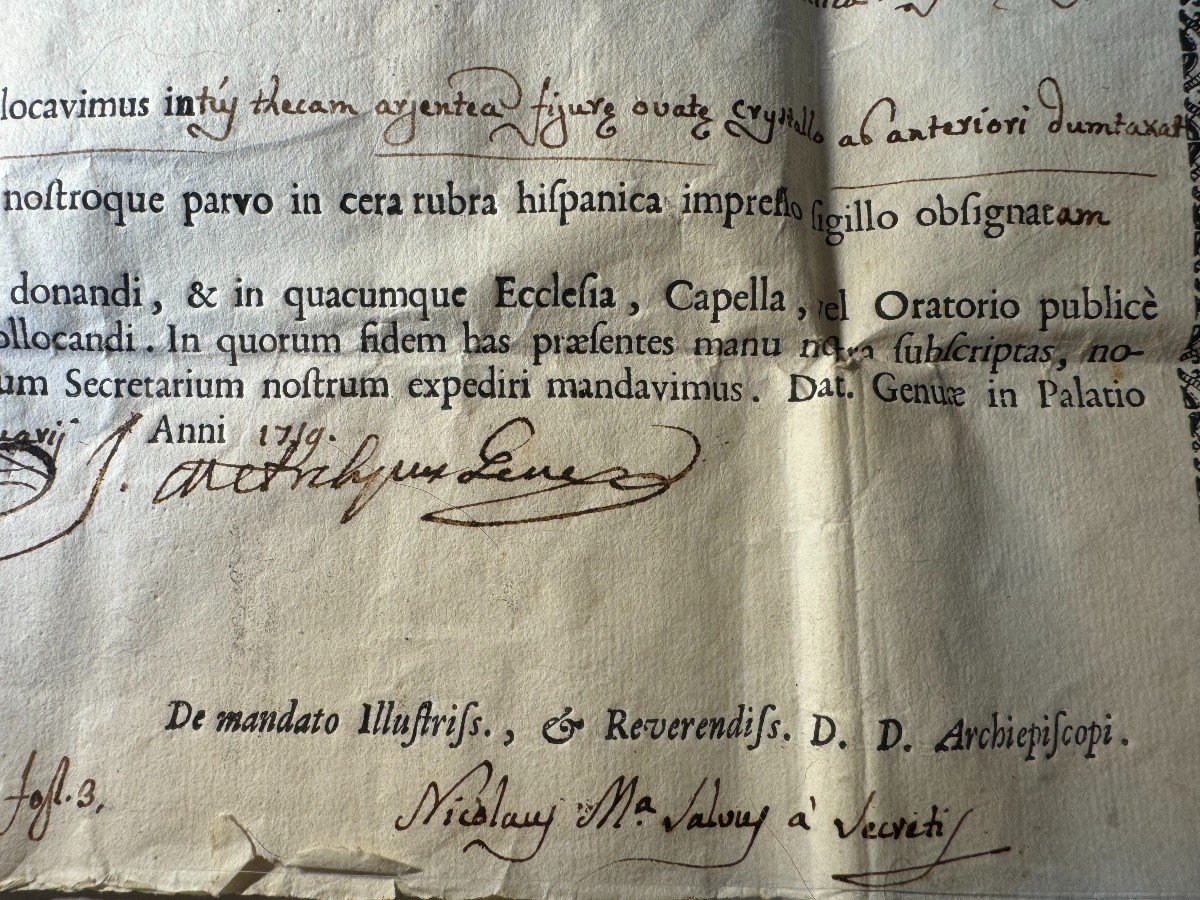 locavimus intùs thecam argenteā figurę ovatę crystallo ab anteriori dumtaxat
noſtroque parvo in cera rubra hiſpanica impreſſo ſigillo obſignatam
donandi, & in quacumque Eccleſia, Capella, vel Oratorio publicè
ollocandi. In quorum fidem has præſentes manu noſtra ſubſcriptas, no-
um Secretarium noſtrum expediri mandavimus. Dat. Genuæ in Palatio
uarij Anni 1719.
Archiepus Genuę
De mandato Illuſtriſs., & Reverendiſs. D. D. Archiepiſcopi.
fol. 3.
Nicolaus Mª Salvus à Secretis